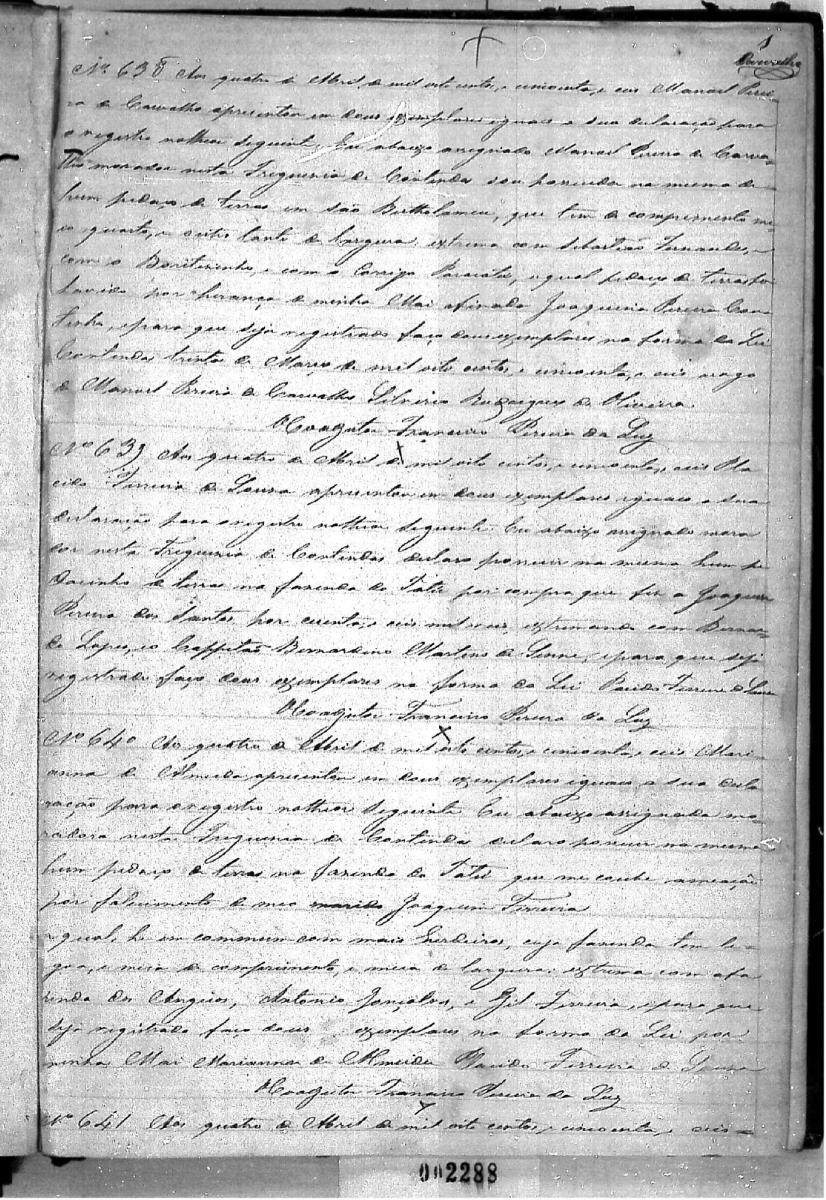 1
Carvalho
Nº 638 Aos quatro de Abril de mil oito centos, e cincoenta, e seis Manoel Perei-
ra de Carvalho apresentou em dous exemplares iguaes a sua declaração para
o registro no theor seguinte. Eu abaixo assignado Manoel Pereira de Carva-
lho morador nesta Freguesia de Contendas sou possuidor na mesma de
hum pedaço de terras em são Bertholameu, que tem de comprimento me-
io quarto, e outro tanto de largura, extrema com Sebastião Fernandes, e
com o Boritizinho, e com o Corrigo Paracatu, o qual pedaço de terras
havido por herança de minha Mai a finada Joaquina Pereira Cou-
tinha, e para que seja registrado faço dous exemplares na forma da Lei
Contendas trinta de Março de mil oito centos, e cincoenta, e seis a rogo
de Manoel Pereira de Carvalho Silverio Rodrigues de Oliveira
O Coadjutor Francisco Pereira da Luz
Nº 639 Aos quatro de Abril de mil oito centos, e cincoenta, e seis Pla-
cido Ferreira de Sousa apresentou em dous exemplares iguaes a sua
declaração para o registro no theor seguinte. Eu abaixo assignado mora-
dor nesta Freguesia de Contendas declaro possuir na mesma hum pe-
dacinho de terras na fazenda do Tatú por compra que fiz a Joaquim
Pereira dos Santos por cuenta, e seis mil reis, extremando com Bernar-
do Lopes, e o Cappitão Bernardino Martins de Senne, e para que seja
registrado faço dous exemplares na forma da Lei Placido Ferreira de Sousa
O Coadjutor Francisco Pereira da Luz
Nº 640 Aos quatro de Abril de mil oito centos, e cincoenta, e seis Mari-
anna de Almeida apresentou em dous exemplares iguaes a sua decla-
ração para o registro no theor seguinte Eu abaixo assignada mo-
radora nesta Freguesia de Contendas declaro possuir na mesma
hum pedaço de terras na fazenda do Tatú que me coube a meação
por falecimento de meo marido Joaquim Ferreira
o qual, he em commum com mais herdeiros, cuja fazenda tem le-
goa, e meia de comprimento, e meia de largura: extrema com a fa-
zenda dos Angicos, Antonio Gonçalves, e Gil Ferreira, e para que
seja registrado faço dous exemplares na forma da Lei por
minha Mai Marianna de Almeida Placido Ferreira de Sousa
O Coadjutor Francisco Pereira da Luz
Nº 641 Aos quatro de Abril de mil oito centos, e cincoenta, e seis
002288